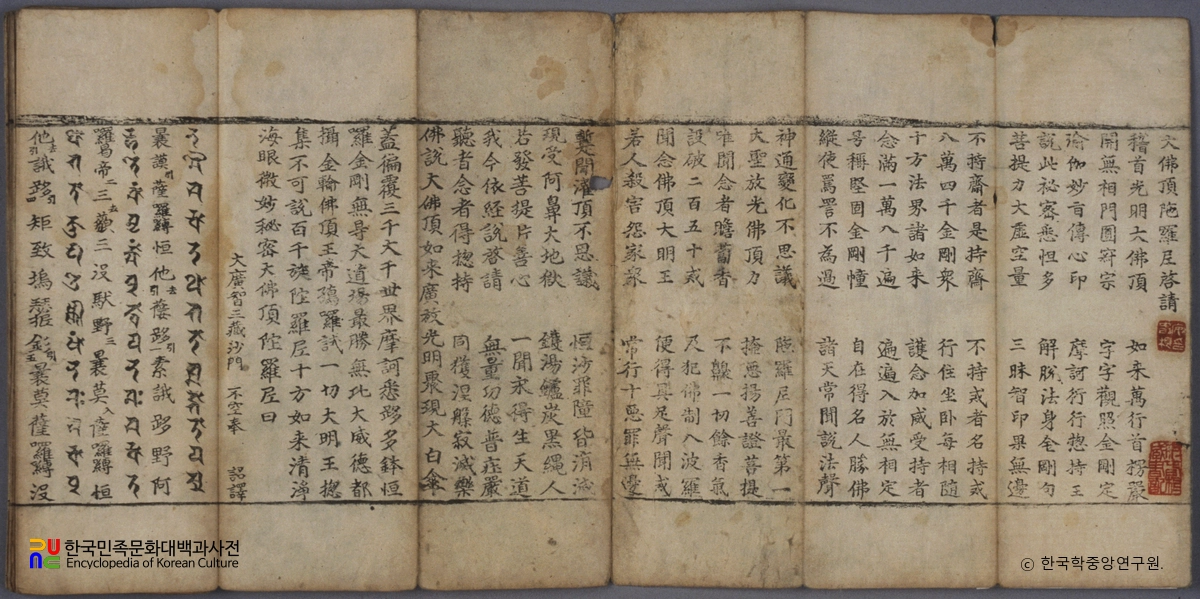 大佛頂陁羅尼啓請
稽首光明大佛頂 如来萬行首楞嚴
開無相門圓寂宗 字字觀照金剛定
瑜伽妙旨傳心印 摩訶衍行惣持王
說此祕密悉怛多 解脫法身金剛句
菩提力大虛空量 三昧智印果無邊
不持齋者是持齋 不持戒者名持戒
八萬四千金剛衆 行住坐卧每相隨
十方法界諸如来 護念加威受持者
念滿一萬八千遍 遍遍入於無相定
号稱堅固金剛幢 自在得名人勝佛
縱使罵詈不為過 諸天常聞說法聲
神通變化不思議 陁羅尼門最第一
大聖放光佛頂力 掩惡揚善證菩提
唯聞念者瞻蔔香 不齅一切餘香氣
設破二百五十戒 及犯佛制八波羅
聞念佛頂大明王 便得具足聲聞戒
若人殺害怨家衆 常行十惡罪無邊
蹔聞灌頂不思議 恒沙罪障皆消滅
現受阿鼻大地獄 鑊湯鑪炭黑繩人
若發菩提片善心 一聞永得生天道
我今依経說啓請 無量功德普庄嚴
聽者念者得揔持 同獲涅槃寂滅樂
佛說大佛頂如来廣放光明聚現大白傘
盖徧覆三千大千世界摩訶悉跢多鉢恒
羅金剛無㝵大道場最勝無比大威德都
攝金輪佛頂王帝殊羅試一切大明王揔
集不可說百千旋陁羅尼十方如来清淨
海眼微妙秘密大佛頂陁羅尼曰
大廣智三藏沙門 不空奉 詔譯
曩謨薩羅嚩恒他蘖跢素誐跢野阿
羅曷帝三藐三没馱野曩莫薩羅嚩恒
他誐跢矩致塢瑟抳釤曩莫薩羅嚩没
한국민족문화대백과사전
Encyclopedia of Korean Culture
ⓒ 한국학중앙연구원.